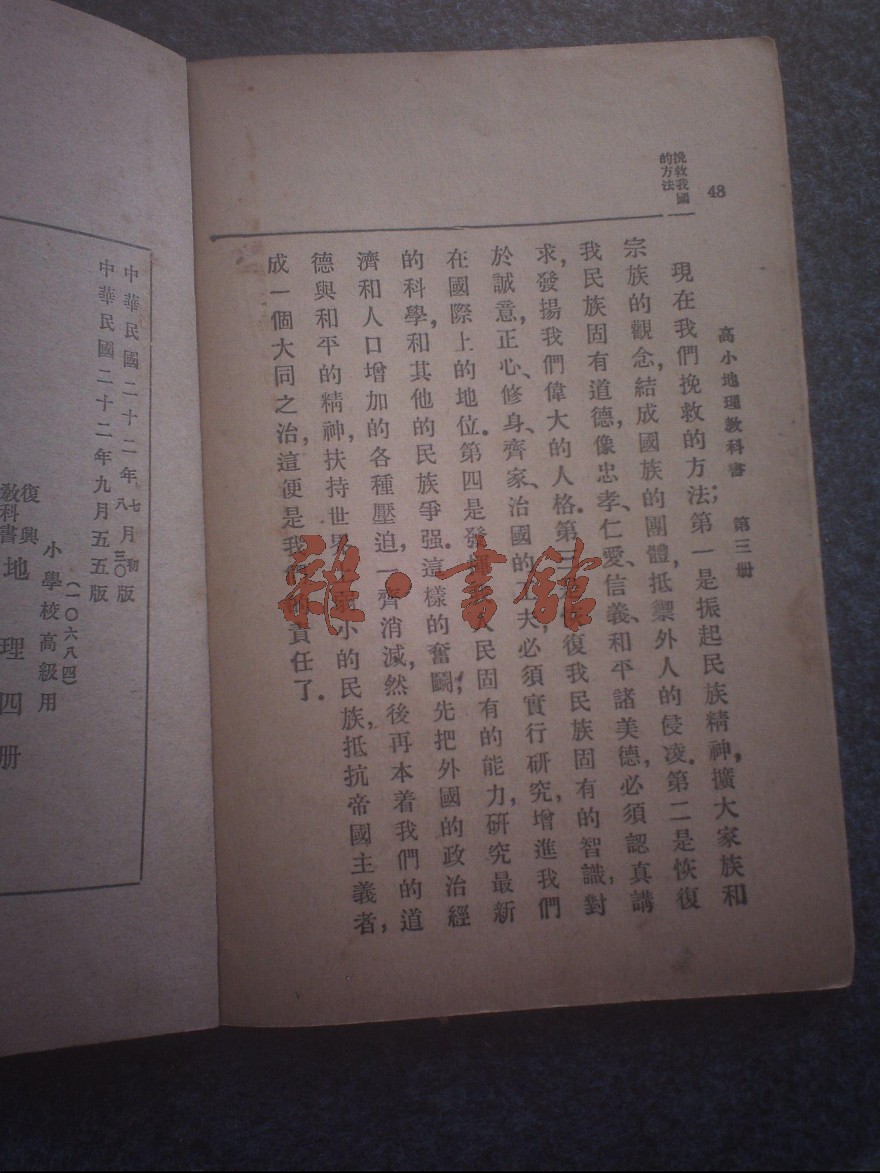 48
挽救我國
的方法
高小地理教科書 第三册
現在我們挽救的方法；第一是振起民族精神，擴大家族和
宗族的觀念，結成國族的團體，抵禦外人的侵凌。第二是恢復
我民族固有道德，像忠孝、仁愛、信義、和平諸美德，必須認真講
求，發揚我們偉大的人格。第三復我民族固有的智識，對
於誠意、正心、修身、齊家、治國的工夫，必須實行研究，增進我們
在國際上的地位。第四是發人民固有的能力，研究最新
的科學，和其他的民族爭强。這樣的奮鬭；先把外國的政治經
濟和人口增加的各種壓迫，一齊消滅，然後再本着我們的道
德與和平的精神，扶持世界小的民族，抵抗帝國主義者，
成一個大同之治，這便是我責任了。
雜·書館
中華民國二十二年七月初版
中華民國二十二年八月三〇版
中華民國二十二年九月五五版
小學校高級用
（一〇六八四）
復興
教科書
地理四册